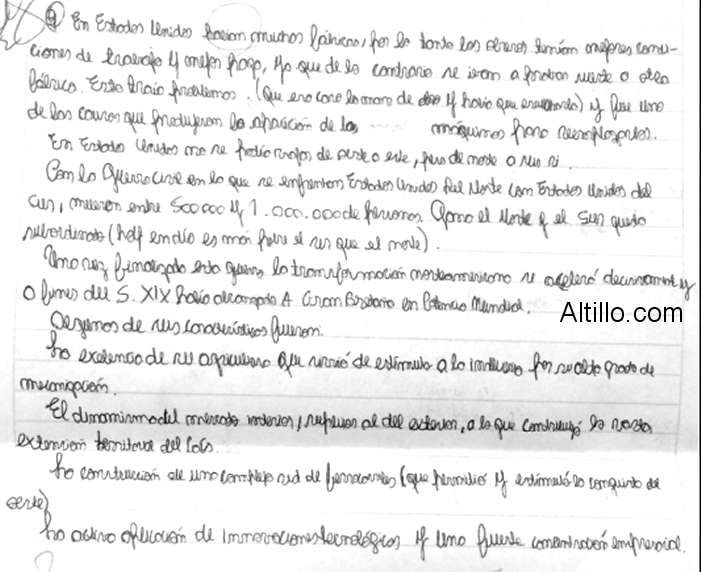 En Estados Unidos habían muchas fábricas, por lo tanto los obreros tenían mejores condi-
ciones de trabajo y mejor pago, ya que de lo contrario se iban a probar suerte a otra
fábrica. Esto trajo problemas. (Que era cara la mano de obra y había que) y fue una
de las causas que produjeron la aparición de las máquinas para reemplazarlos.
En Estados Unidos no se podía viajar de este a oeste, pero de norte a sur si.
Con la Guerra Civil en la que se enfrentan Estados Unidos del Norte con Estados Unidos del
Sur, mueren entre 500.000 y 1.000.000 de personas. Gana el Norte y el Sur queda
subordinado (hoy en día es más pobre el sur que el norte).
Una vez finalizada esta guerra la transformación norteamericana se aceleró decisivament y
a fines del S. XIX había alcanzado A Gran Bretaña en Potencia Mundial.
Altillo.com
Algunas de sus características fueron:
La excelencia de su agricultura que sirvió de estímulo a la industria por su alto grado de
mecanización.
El dinamismo del mercado interior, superior al del exterior, a lo que contribuyó la vasta
extención territorial del País.
La construcción de una compleja red de ferrocarriles (que permitió y estimuló la conquista de
oeste)
La activa aplicación de innovaciones tecnológicas y una fuerte concentración empresarial.